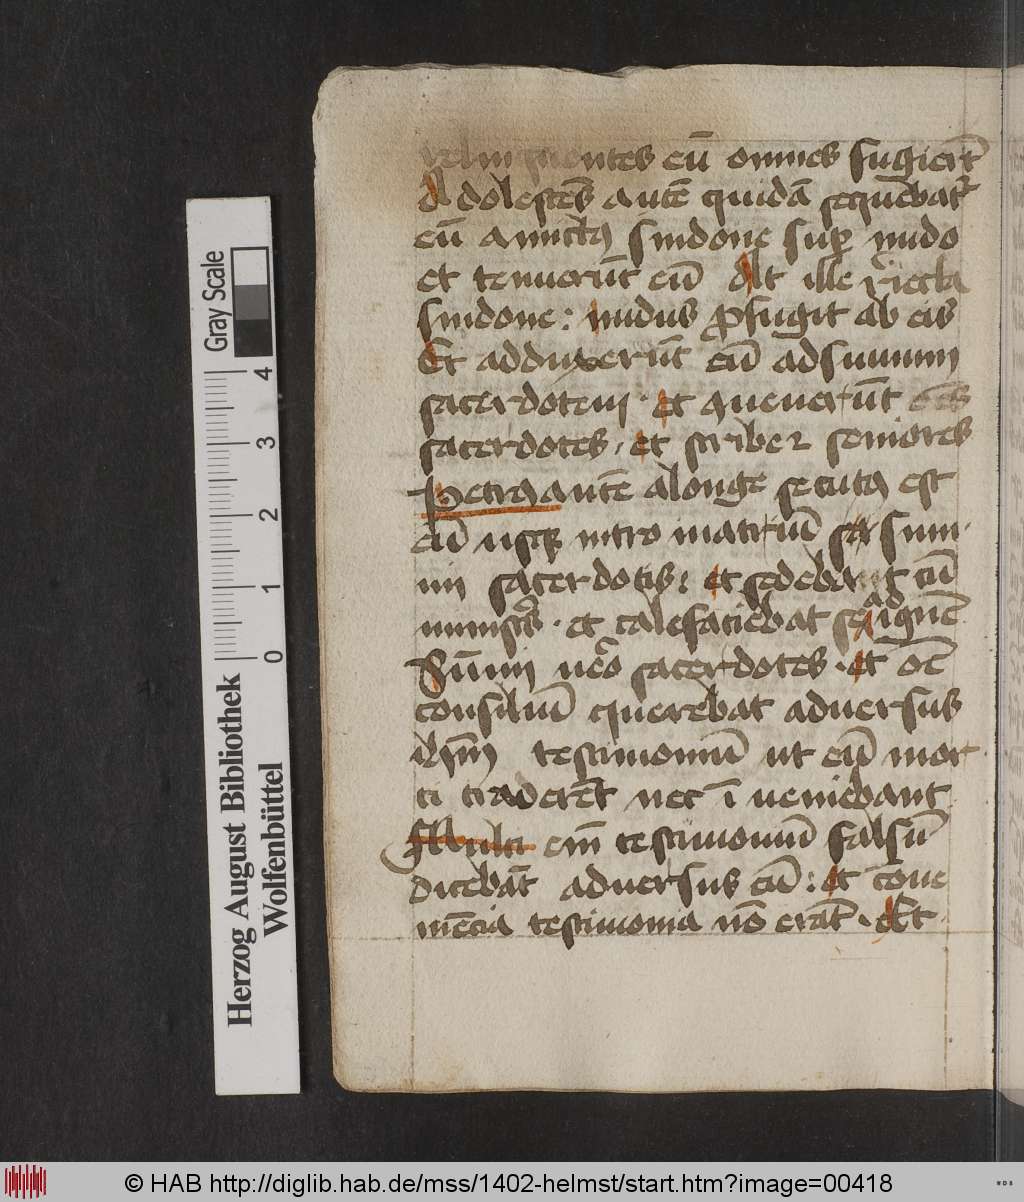 relinquentes eū omnes fugiert̄
Adolescēs autē quidā sequebat᷑
eū amictꝰ sindone suꝑ nudo
et tenuerūt eū At ille reiecta
sindone: nudus ꝓfugit ab eis
Et adduxerūt eū ad summū
sacerdotem · et quenerūt oēs
sacerdotes · et scribe ⁊ seniores
Petrꝰ autē a longe secutꝰ est
eū usqꝫ intro in atriū sūm
mi sacerdotis: et sedebat cū
ministris · et calefaciebat se ad ignē
Sūmi uēo sacerdotes · et oē
consiliū querebāt aduersus
ihm̄ testimoniū ut eū mor
ti traderēt nec īueniebant
Multi em̄ testimoniū falsū
dicebāt aduersus eū: et cōue
niēcia testimonia nō erāt · Et
Gray Scale
0 1 2 3 4
Herzog August Bibliothek
Wolfenbüttel
© HAB http://diglib.hab.de/mss/1402-helmst/start.htm?image=00418